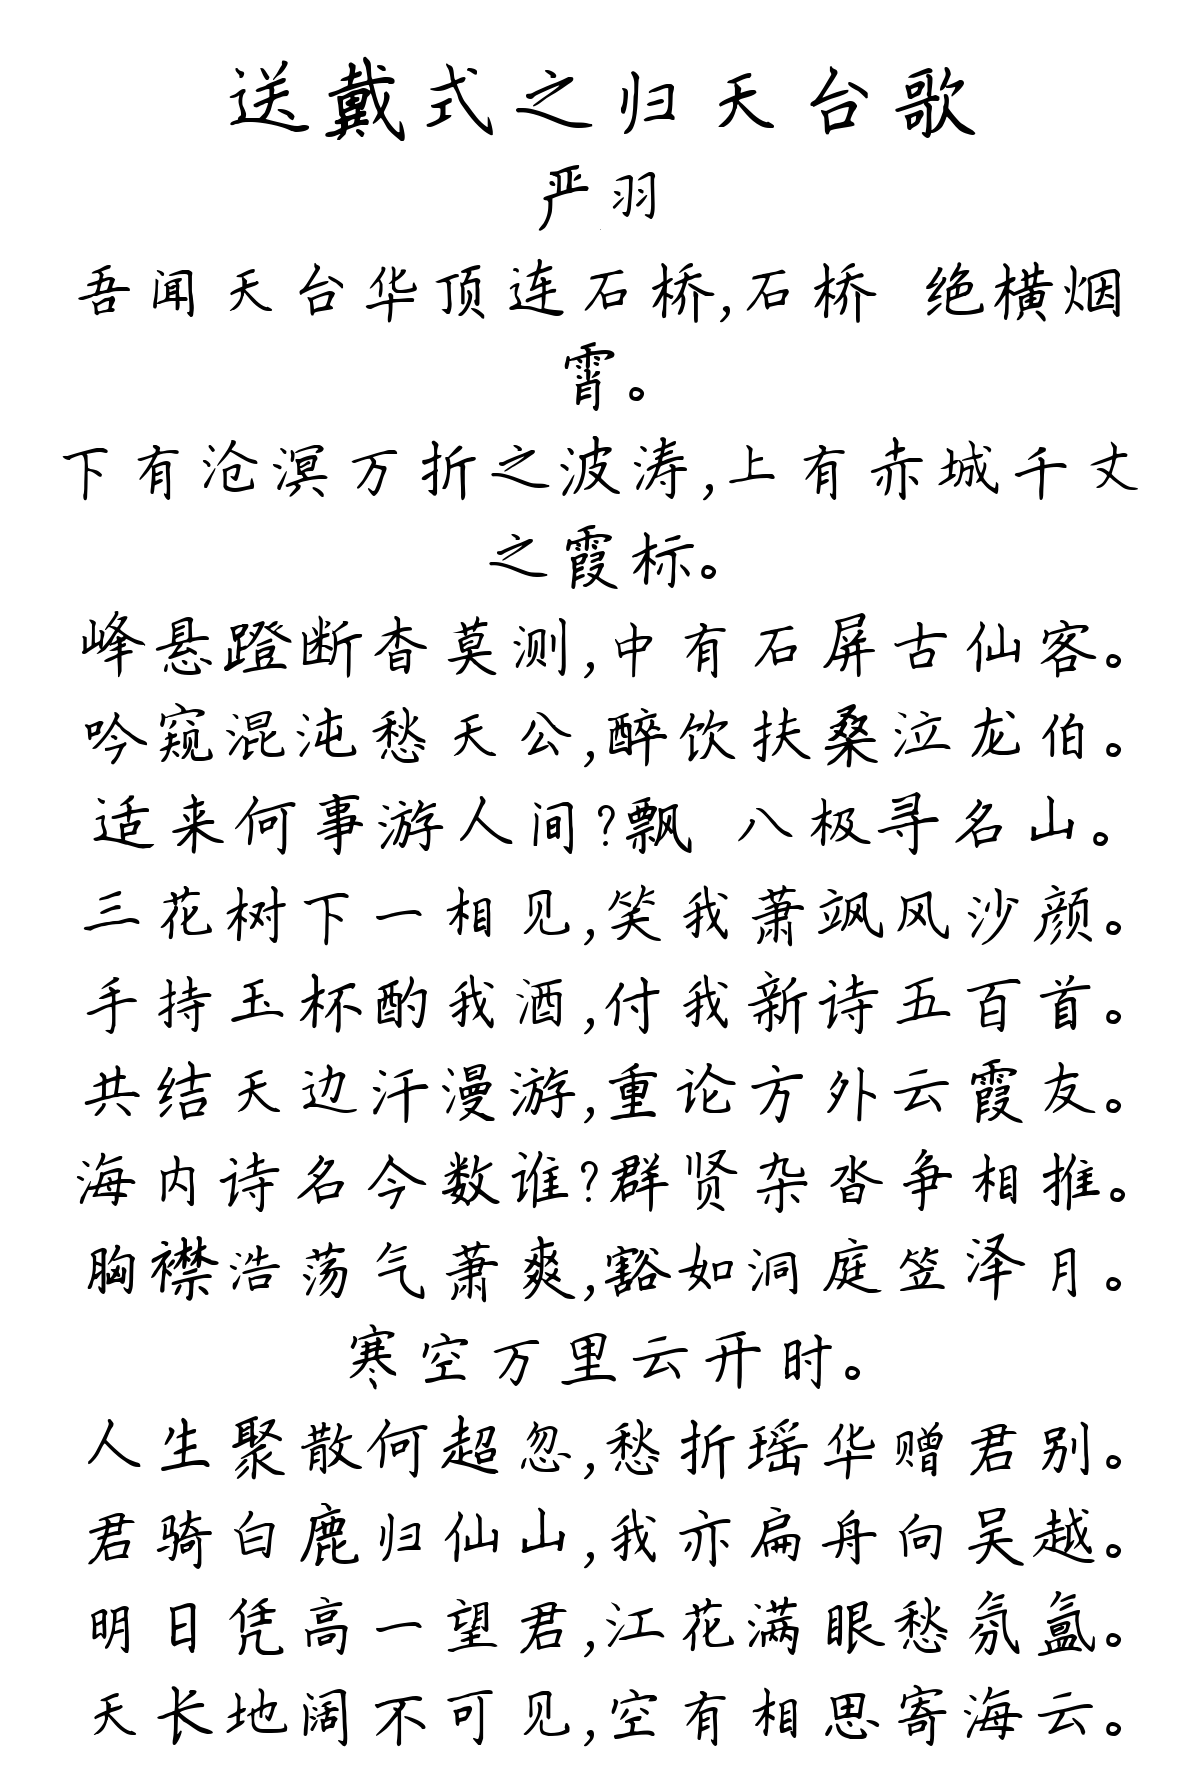 送戴式之归天台歌
严羽
吾闻天台华顶连石桥,石桥 绝横烟
霄。
下有沧溟万折之波涛,上有赤城千丈
之霞标。
峰悬蹬断杳莫测,中有石屏古仙客。
吟窥混沌愁天公,醉饮扶桑泣龙伯。
适来何事游人间?飘 八极寻名山。
三花树下一相见,笑我萧飒风沙颜。
手持玉杯酌我酒,付我新诗五百首。
共结天边汗漫游,重论方外云霞友。
海内诗名今数谁?群贤杂沓争相推。
胸襟浩荡气萧爽,豁如洞庭笠泽月。
寒空万里云开时。
人生聚散何超忽,愁折瑶华赠君别。
君骑白鹿归仙山,我亦扁舟向吴越。
明日凭高一望君,江花满眼愁氛氲。
天长地阔不可见,空有相思寄海云。